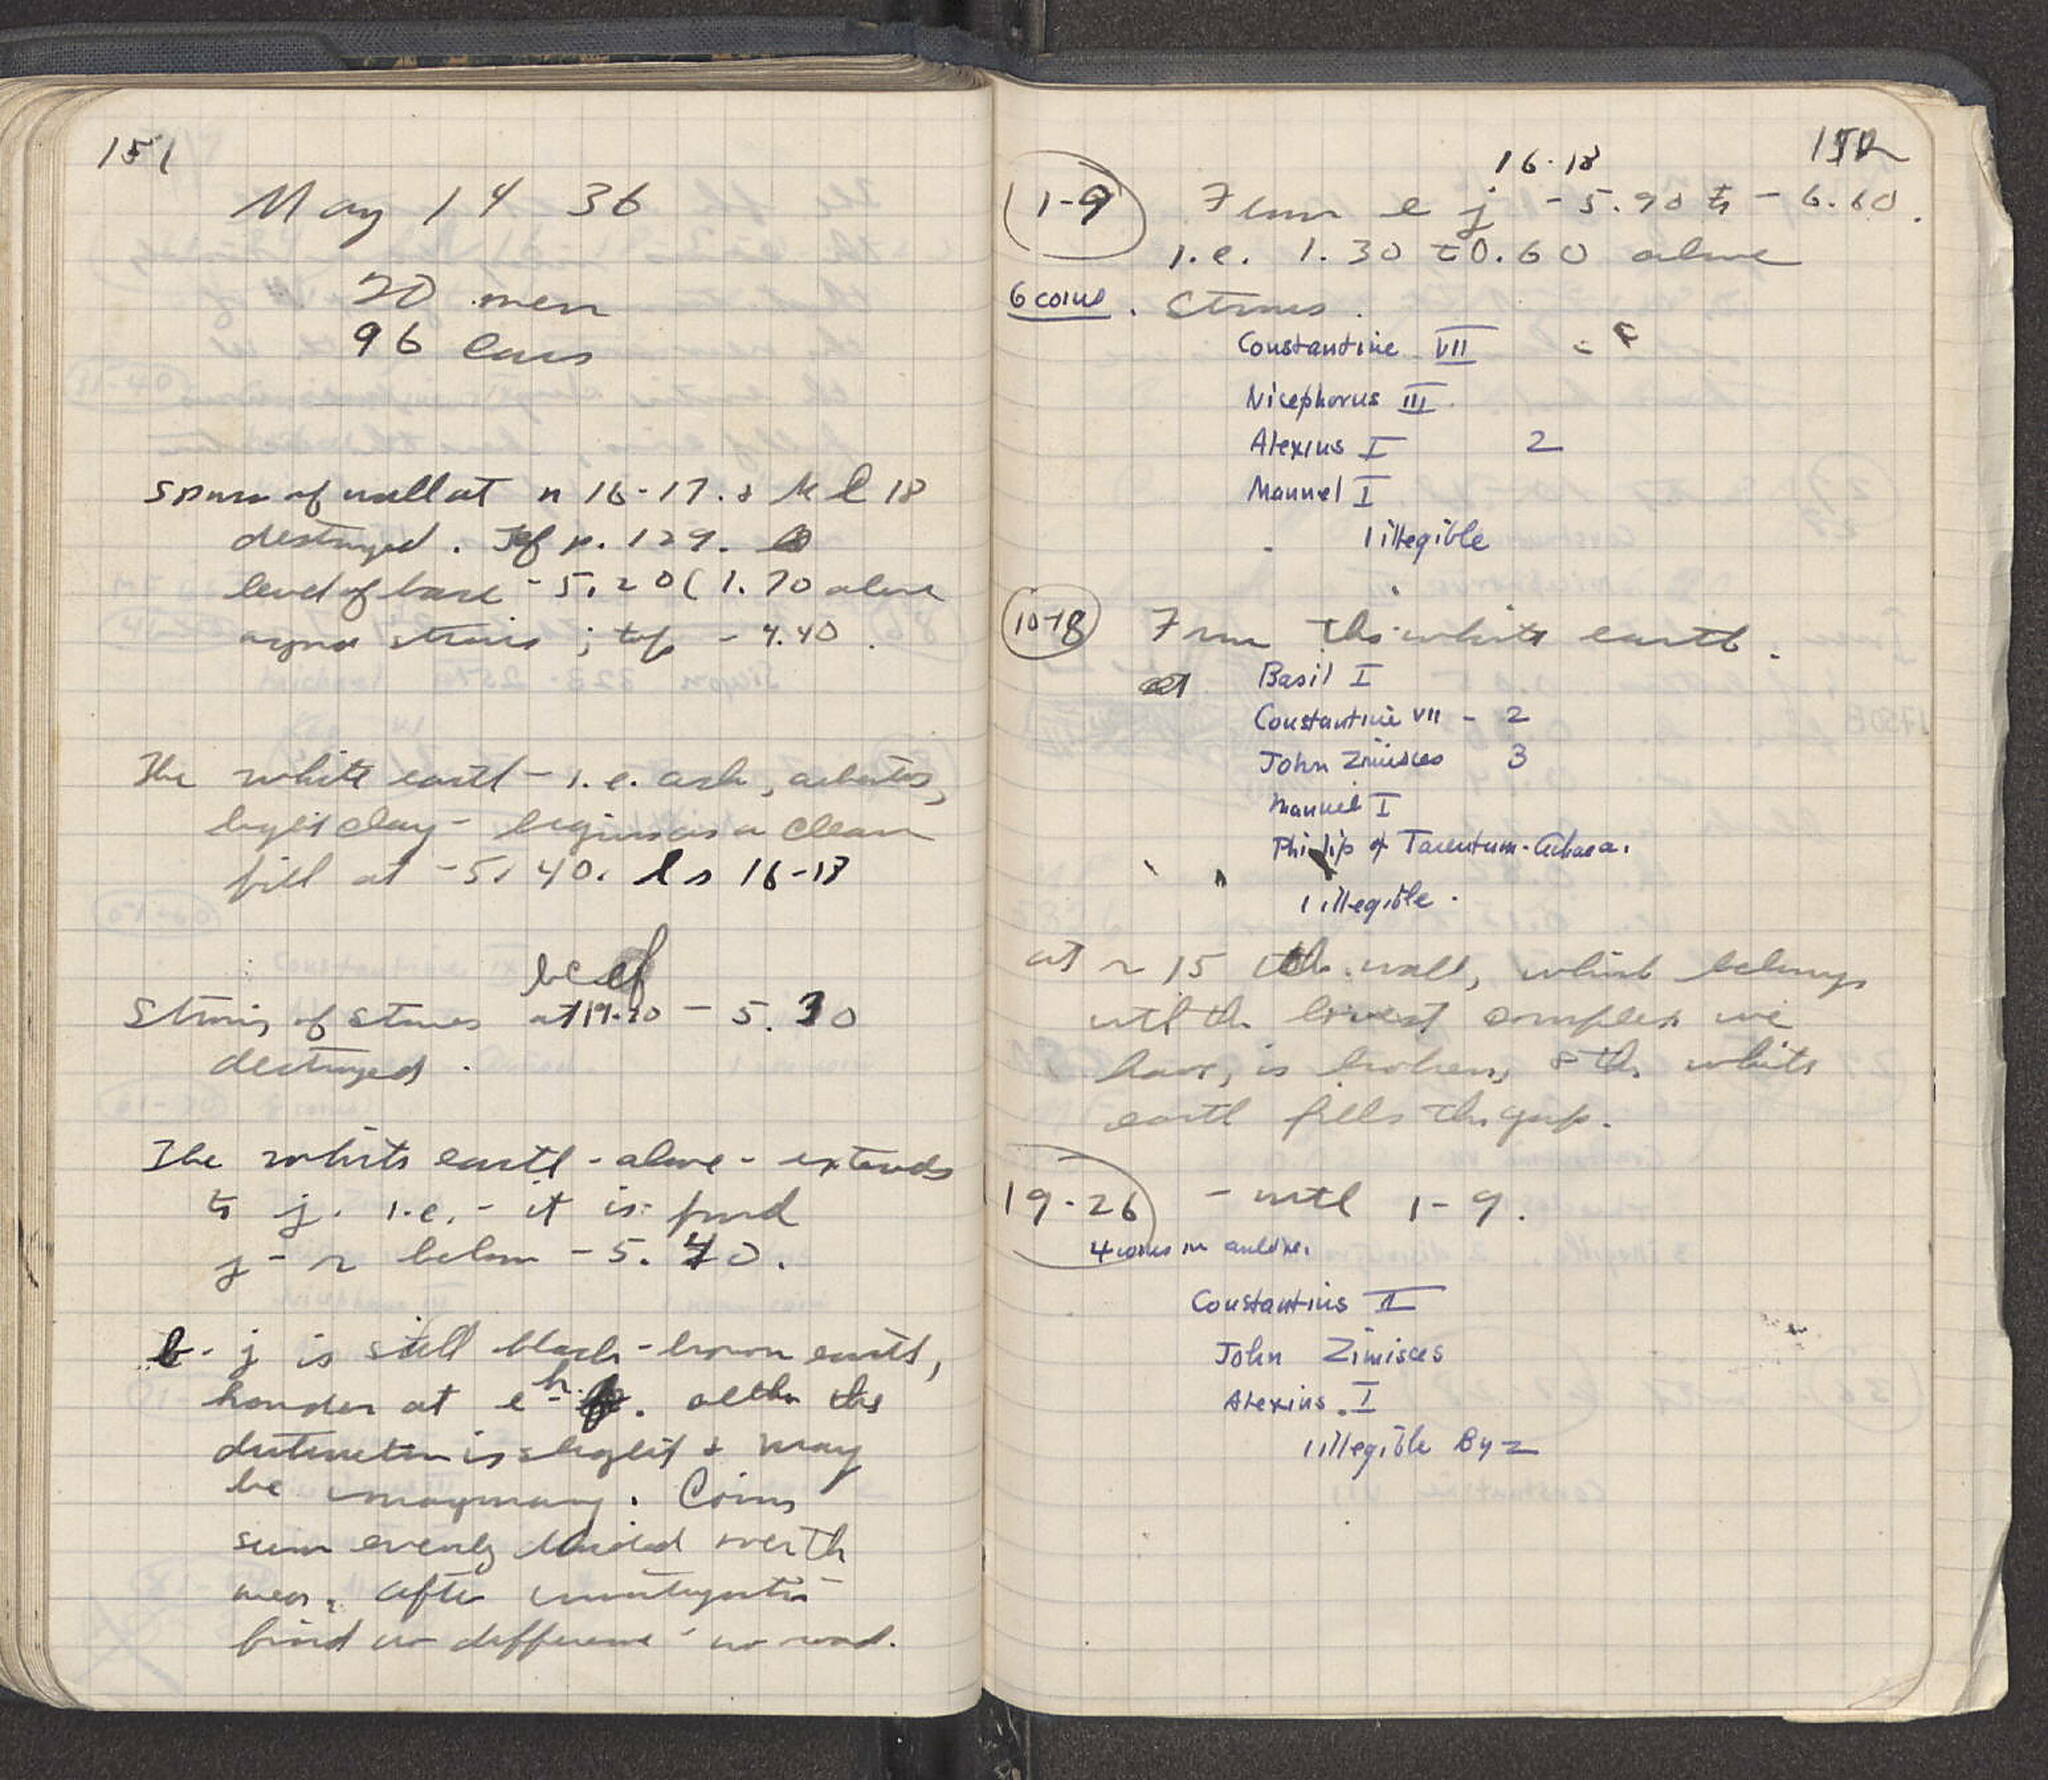 151
May 14 36
20 men
96 cars
Spur of wall at n 16-17. & k l 18
destroyed. Cf p. 129.
level of base -5.20 (1.70 above
agora stairs; top -4.40.
The white earth - i.e. ash, asbestos,
light clay - begins as a clean
fill at -5.40. l n 16-18
Strip of stones at 19-20 - 5.30
destroyed.
The white earth - above - extends
to j. i.e. - it is found
j - n below - 5.40.
b - j is still black-brown earth,
harder at e - h. altho the
distinction is slight & may
be imaginary. Coins
seem evenly divided over the
area. After investigation
find no difference no road.
152
16-18
1-9 From e j -5.90 to -6.60.
i.e. 1.30 to 0.60 above
6 coins. Stairs.
Constantine VII
Nicephorus III
Alexius I 2
Manuel I
1 illegible
10-18 From the white earth.
Basil I
Constantine VII - 2
John Zimisces 3
Manuel I
Philip of Tarentum - Achaea.
1 illegible.
at n 15 the wall, which belongs
with the lowest complex we
have, is broken, & the white
earth fills the gap.
19-26 - with 1-9.
4 coins in
Constantius II
John Zimisces
Alexius I
1 illegible Byz